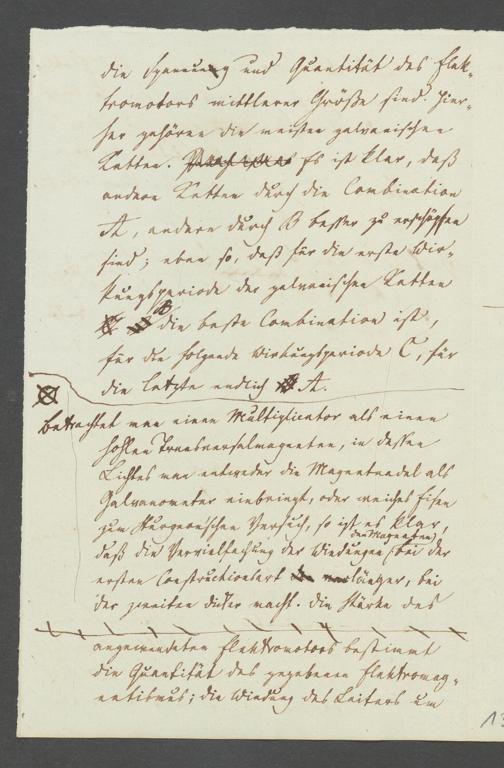 die Spannung und Quantität des Elek-
tromotors mittlerer Größe sind. Hier-
her gehören die meisten galvanischen
Ketten. Es ist klar, daß
andere Ketten durch die Combination
A, andere durch B besser zu erschöpfen
sind; eben so, daß für die erste Wir-
kungsperiode der galvanischen Ketten
B die beste Combination ist,
für die folgende Wirkungsperiode C, für
die letzte endlich A.
Betrachtet man einen Multiplicator als einen
hohlen Transversalmagneten, in dessen
Lichtes man entweder die Magnetnadel als
Galvanometer einbringt, oder weiches Eisen
zum Sturgeonschen Versuch, so ist es klar,
daß die Vervielfachung der Windungen den Magneten bei der
ersten Constructionsart länger, bei
der zweiten dicker macht. Die Stärke des
angewendeten Elektromotors bestimmt
die Quantität des gegebenen Elektromag-
netismus; die Windung des Leiters um
13